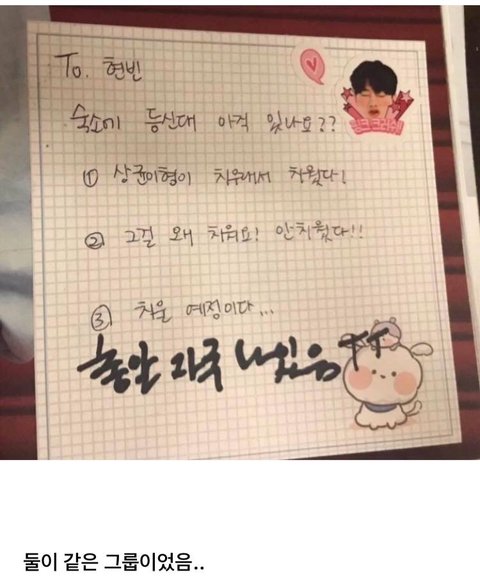 To. 현빈
숙소에 등신대 아직 있나요??
① 상균이형이 치우래서 치웠다!
② 그걸 왜 치워요! 안치웠다!!
③ 치울 예정이다...
총알 자국 나있음 ㅠㅠ
둘이 같은 그룹이었음..